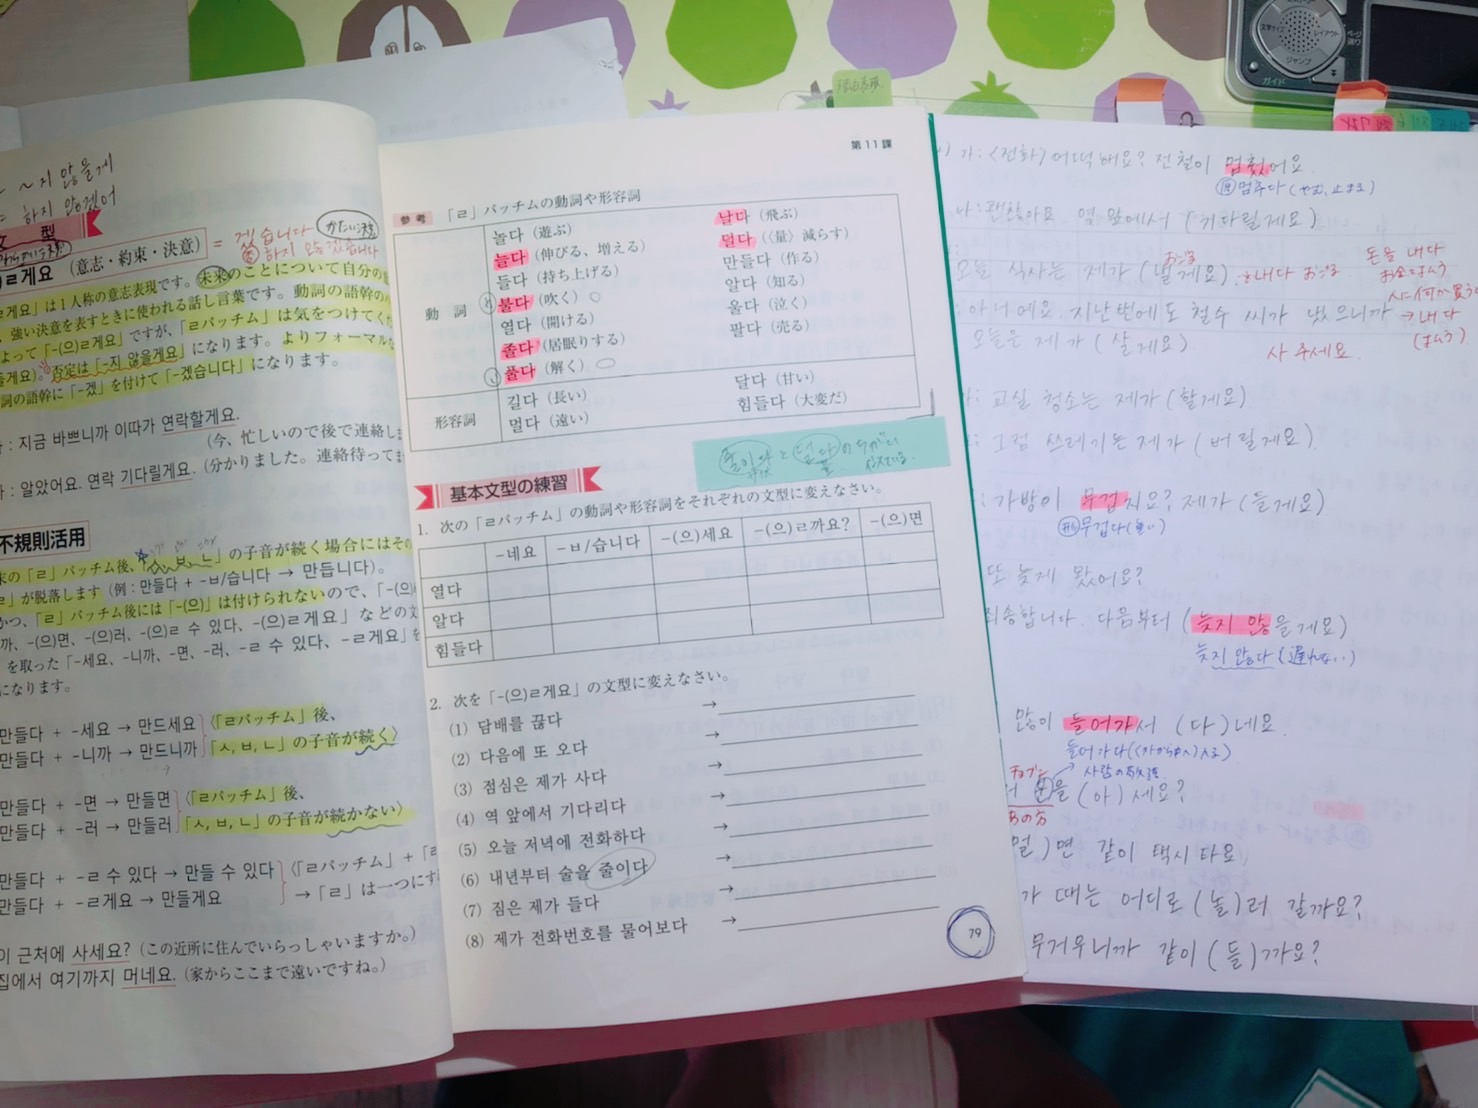 ~지 않을게
하지 않겠어
文 型
ㄹ게요 (意志・約束・決意)
= 겠습니다
かたい決意
하지 않겠습니다
ㄹ게요」は1人称の意志表現です。未来のことについて自分の意
、強い決意を表すときに使われる話し言葉です。動詞の語幹の
よって「-(으)ㄹ게요」ですが、「ㄹパッチム」は気をつけてく
게요)。否定は「-지 않을게요」になります。よりフォーマルな
詞の語幹に「-겠」を付けて「-겠습니다」になります。
: 지금 바쁘니까 이따가 연락할게요.
(今、忙しいので後で連絡し
: 알았어요. 연락 기다릴게요. (分かりました。連絡待ってま
不規則活用
末の「ㄹ」パッチム後、「ㅅ, ㅂ, ㄴ」の子音が続く場合にはその
ㄹ」が脱落します (例 : 만들다 + -ㅂ/습니다 → 만듭니다)。
かつ、「ㄹ」パッチム後には「-(으)」は付けられないので、「-(으)
까, -(으)면, -(으)러, -(으)ㄹ 수 있다, -(으)ㄹ게요」などの文
を取った「-세요, -니까, -면, -러, -ㄹ 수 있다, -ㄹ게요」を
になります。
만들다 + -세요 → 만드세요
만들다 + -니까 → 만드니까
〈「ㄹパッチム」後、
「ㅅ, ㅂ, ㄴ」の子音が続く〉
만들다 + -면 → 만들면
만들다 + -러 → 만들러
〈「ㄹパッチム」後、
「ㅅ, ㅂ, ㄴ」の子音が続かない〉
만들다 + -ㄹ 수 있다 → 만들 수 있다
만들다 + -ㄹ게요 → 만들게요
〈「ㄹパッチム」+「ㄹ
→「ㄹ」は一つにす
이 근처에 사세요? (この近所に住んでいらっしゃいますか。)
집에서 여기까지 머네요. (家からここまで遠いですね。)
第11課
参考 「ㄹ」パッチムの動詞や形容詞
動 詞
놀다 (遊ぶ)
늘다 (伸びる、増える)
들다 (持ち上げる)
불다 (吹く)
열다 (開ける)
졸다 (居眠りする)
풀다 (解く)
날다 (飛ぶ)
덜다 (〈量〉減らす)
만들다 (作る)
알다 (知る)
울다 (泣く)
팔다 (売る)
形容詞
길다 (長い)
멀다 (遠い)
달다 (甘い)
힘들다 (大変だ)
줄이다 と 덜다 のちがい
基本文型の練習
1. 次の「ㄹパッチム」の動詞や形容詞をそれぞれの文型に変えなさい。
-네요 -ㅂ/습니다 -(으)세요 -(으)ㄹ까요? -(으)면
열다
알다
힘들다
2. 次を「-(으)ㄹ게요」の文型に変えなさい。
(1) 담배를 끊다 →
(2) 다음에 또 오다 →
(3) 점심은 제가 사다 →
(4) 역 앞에서 기다리다 →
(5) 오늘 저녁에 전화하다 →
(6) 내년부터 술을 줄이다 →
(7) 짐은 제가 들다 →
(8) 제가 전화번호를 물어보다 →
79
가: <전화> 어떡해요? 전철이 멈췄어요
멈추다 (やむ, 止まる)
나: 괜찮아요 역 앞에서 (기다릴게요)
오늘 식사는 제가 (낼게요).
내다 おごる
돈을 내다
お金をはらう
아니에요. 지난번에도 철수 씨가 냈으니까
→ 내다
(はらう)
오늘은 제가 (살게요)
사 주세요
가: 교실 청소는 제가 (할게요).
그럼 쓰레기는 제가 (버릴게요).
가방이 무겁지요? 제가 (들게요)
무겁다 (重い)
또 늦게 왔어요?
죄송합니다. 다음부터 (늦지 않을게요)
늦지 않다 (遅れない)
많이 들어가서 (다)네요
들어가다
서 분을 (아)세요?
멀)면 같이 택시 타요
가 때는 어디로 (놀)러 갈까요?
무거우니까 같이 (들)까요?
理由表現
ガイド
ジャンプ
レイアウト
文字サイズ
ページ送り